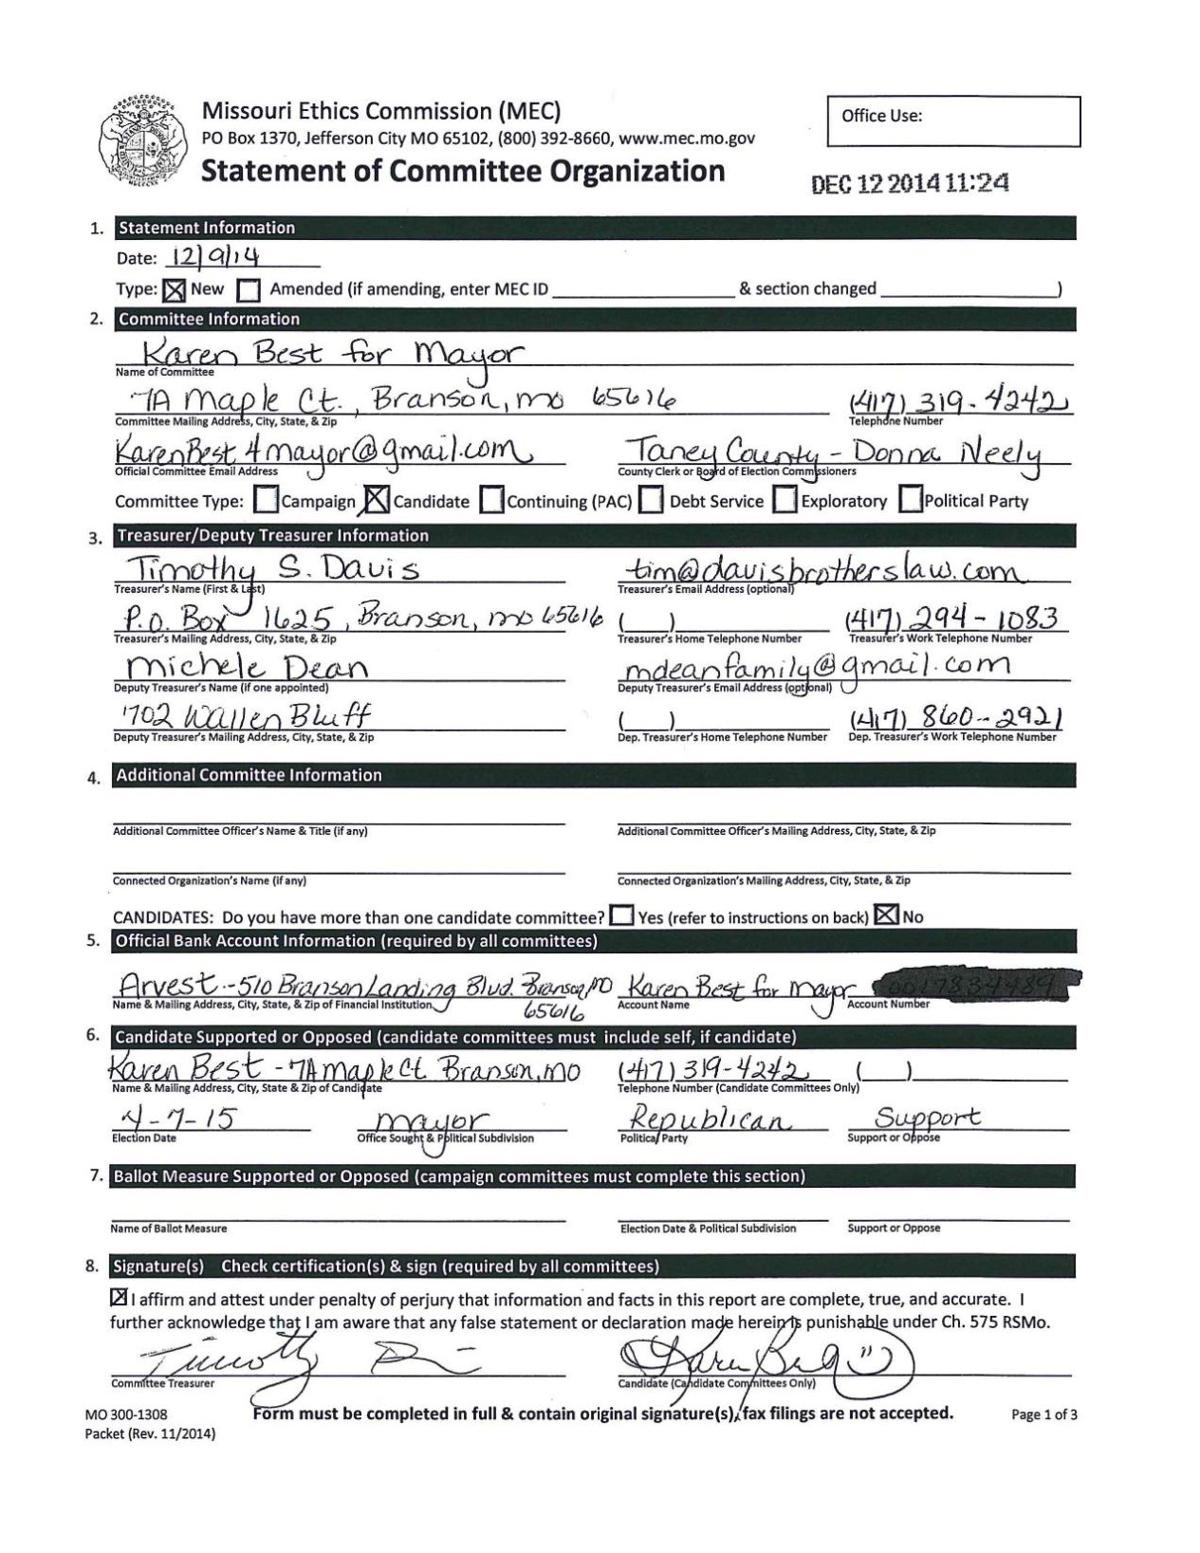 Missouri Ethics Commission (MEC)
PO Box 1370, Jefferson City MO 65102, (800) 392-8660, www.mec.mo.gov
Statement of Committee Organization
Office Use:
DEC 12 2014 11:24
1. Statement Information
Date: 12/9/14
Type: New Amended (if amending, enter MEC ID & section changed )
2. Committee Information
Karen Best for Mayor
Name of Committee
7A Maple Ct., Branson, mo 65616 (417) 319-4242
Committee Mailing Address, City, State, & Zip Telephone Number
KarenBest4mayor@gmail.com Taney County - Donna Neely
Official Committee Email Address County Clerk or Board of Election Commissioners
Committee Type: Campaign Candidate Continuing (PAC) Debt Service Exploratory Political Party
3. Treasurer/Deputy Treasurer Information
Timothy S. Davis tim@davisbrotherslaw.com
Treasurer's Name (First & Last) Treasurer's Email Address (optional)
P.O. Box 1625, Branson, mo 65616 ( ) (417) 294-1083
Treasurer's Mailing Address, City, State, & Zip Treasurer's Home Telephone Number Treasurer's Work Telephone Number
Michele Dean mdeanfamily@gmail.com
Deputy Treasurer's Name (if one appointed) Deputy Treasurer's Email Address (optional)
702 Wallen Bluff ( ) (417) 860-2921
Deputy Treasurer's Mailing Address, City, State, & Zip Dep. Treasurer's Home Telephone Number Dep. Treasurer's Work Telephone Number
4. Additional Committee Information
Additional Committee Officer's Name & Title (if any) Additional Committee Officer's Mailing Address, City, State, & Zip
Connected Organization's Name (if any) Connected Organization's Mailing Address, City, State, & Zip
CANDIDATES: Do you have more than one candidate committee? Yes (refer to instructions on back) No
5. Official Bank Account Information (required by all committees)
Arvest - 510 Branson Landing Blvd. Branson, MO Karen Best for Mayor
Name & Mailing Address, City, State, & Zip of Financial Institution 65616 Account Name Account Number
6. Candidate Supported or Opposed (candidate committees must include self, if candidate)
Karen Best - 7A Maple Ct Branson, MO (417) 319-4242 ( )
Name & Mailing Address, City, State & Zip of Candidate Telephone Number (Candidate Committees Only)
4-7-15 Mayor Republican Support
Election Date Office Sought & Political Subdivision Political Party Support or Oppose
7. Ballot Measure Supported or Opposed (campaign committees must complete this section)
Name of Ballot Measure Election Date & Political Subdivision Support or Oppose
8. Signature(s) Check certification(s) & sign (required by all committees)
I affirm and attest under penalty of perjury that information and facts in this report are complete, true, and accurate. I
further acknowledge that I am aware that any false statement or declaration made herein is punishable under Ch. 575 RSMo.
Committee Treasurer Candidate (Candidate Committees Only)
MO 300-1308 Form must be completed in full & contain original signature(s), fax filings are not accepted. Page 1 of 3
Packet (Rev. 11/2014)